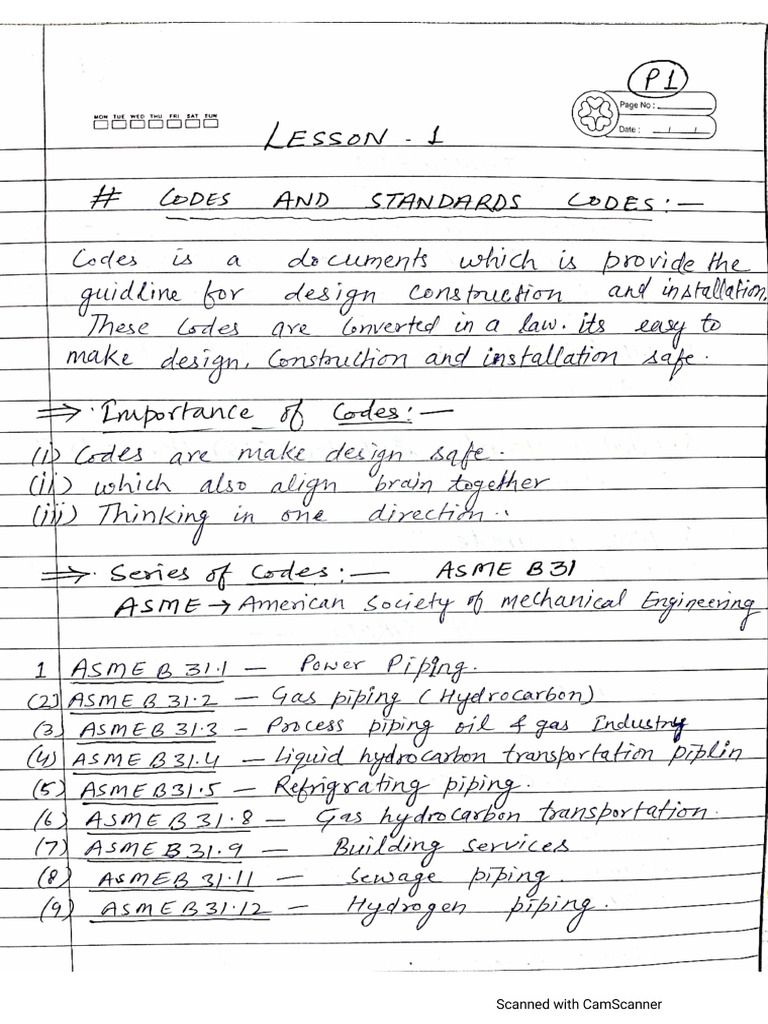 P1
MON TUE WED THU FRI SAT SUN
Page No :
Date :
LESSON - 1
# CODES AND STANDARDS CODES :-
Codes is a documents which is provide the
guidline for design construction and installation.
These Codes are Converted in a law. its easy to
make design, Construction and installation safe.
⇒ Importance of Codes :-
(i) Codes are make design safe.
(ii) which also align brain together
(iii) Thinking in one direction..
⇒ Series of Codes :- ASME B31
ASME → American Society of Mechanical Engineering
1 ASME B 31.1 - Power Piping.
(2) ASME B 31.2 - Gas piping (Hydrocarbon)
(3) ASME B 31.3 - Process piping oil & gas Industry
(4) ASME B31.4 - Liquid hydrocarbon transportation piplin
(5) ASME B31.5 - Refrigrating piping.
(6) ASME B 31.8 - Gas hydrocarbon transportation.
(7) ASME B 31.9 - Building services
(8) ASME B 31.11 - Sewage piping.
(9) ASME B 31.12 - Hydrogen piping.
Scanned with CamScanner